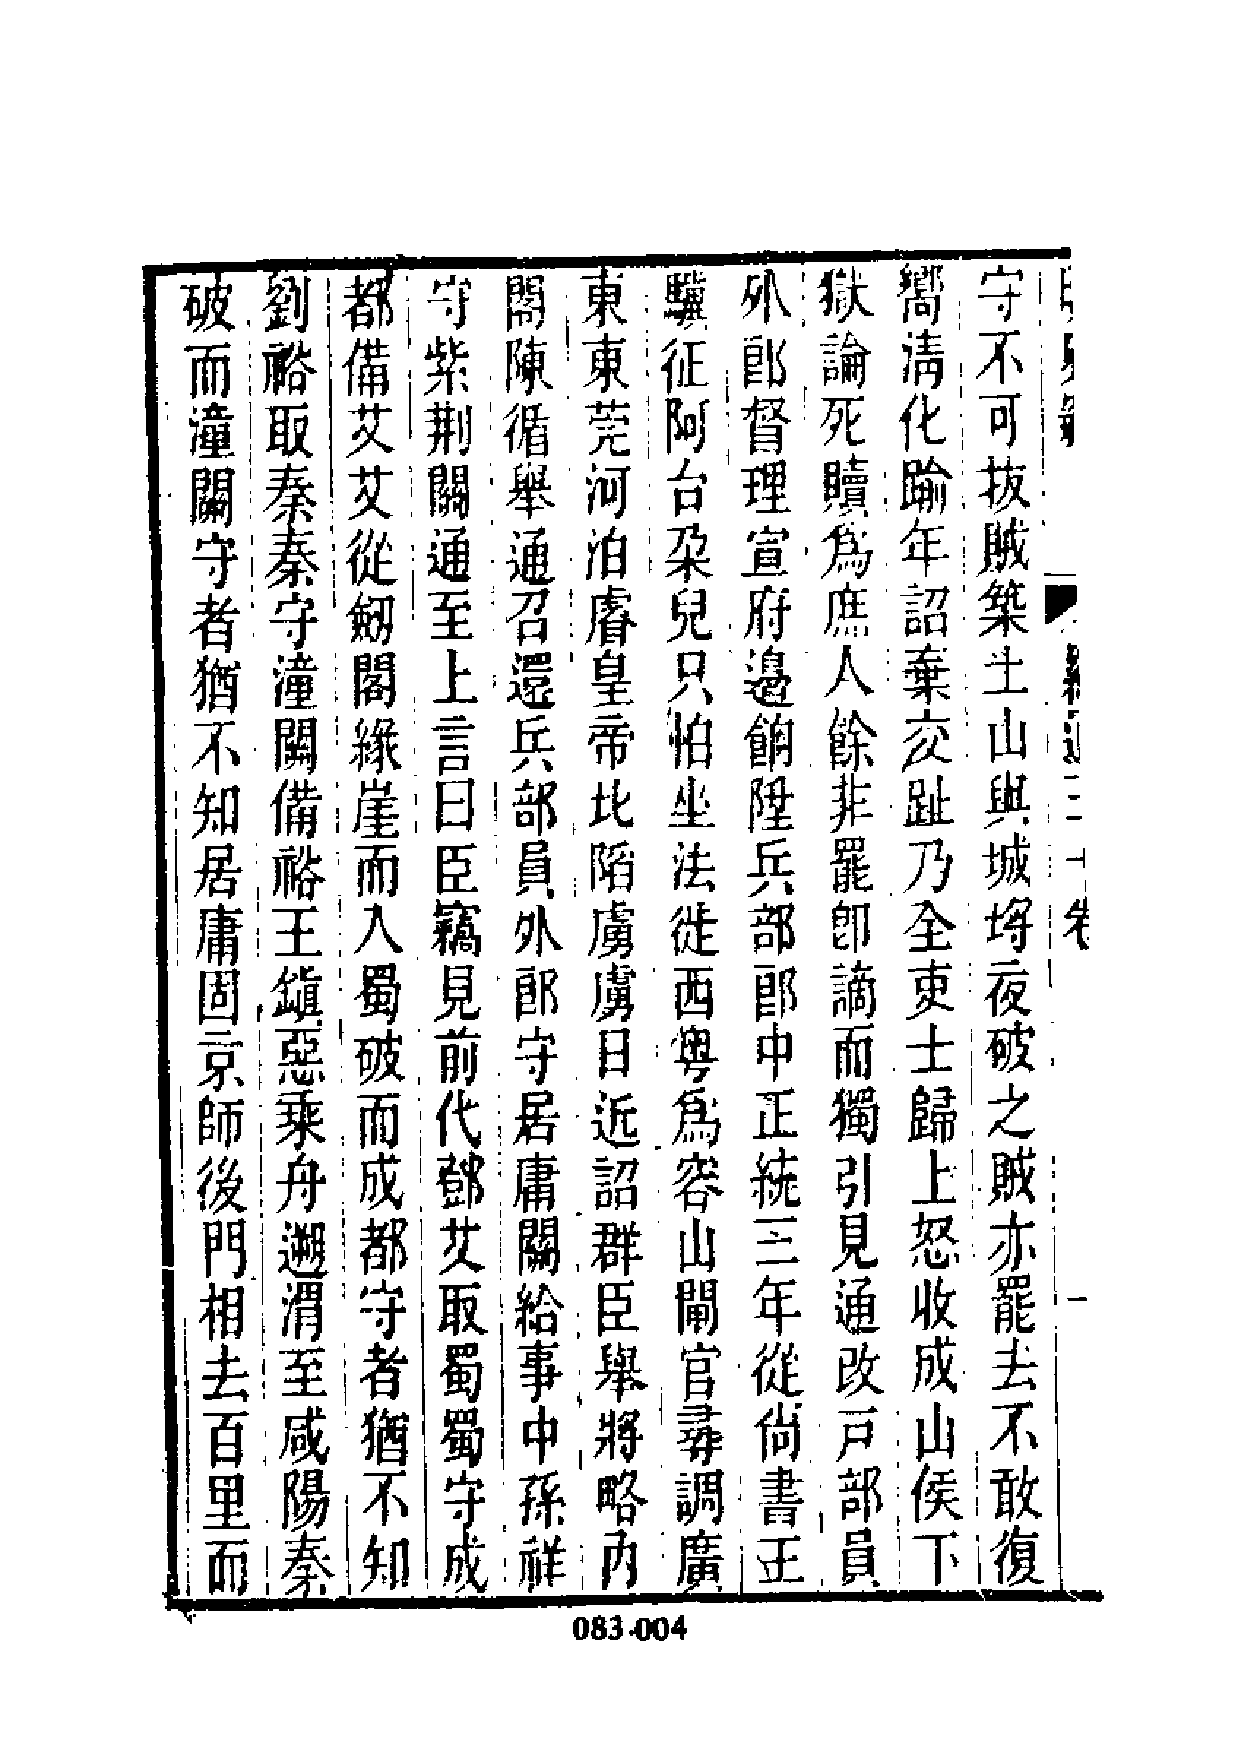 守不可拔賊築土山與城埒夜破之賊亦罷去不敢復
嚮淸化踰年詔棄交趾乃全吏士歸上怒收成山侯下
獄論死贖爲庶人餘非罷卽謫而獨引見通改戸部員
外郎督理宣府邊餉陞兵部郎中正統三年從尙書王
驥征阿台朶兒只怕坐法徙西粤爲容山閘官尋調廣
東東莞河泊睿皇帝北陷虜虜日近詔群臣舉將略內
閣陳循舉通召還兵部員外郎守居庸關給事中孫祥
守紫荆關通至上言曰臣竊見前代鄧艾取蜀蜀守成
都備艾艾從劒閣緣崖而入蜀破而成都守者猶不知
劉裕取秦秦守潼關備裕王鎭惡乘舟遡渭至咸陽秦
破而潼關守者猶不知居庸固京師後門相去百里而
083-004